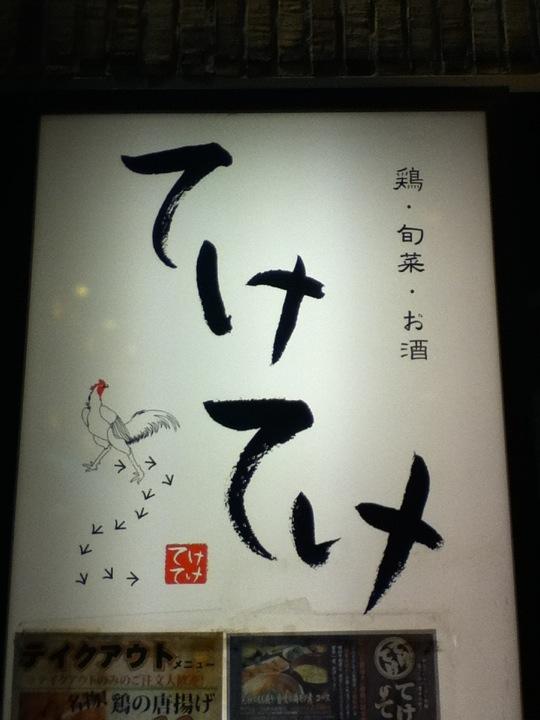 鶏・旬菜・お酒
てけてけ
てけ
てけ
テイクアウトメニュー
テイクアウトのみのご注文大歓迎!
名物! 鶏の唐揚げ
てけ